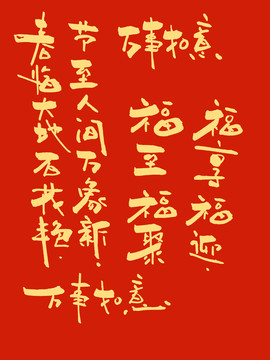 万事如意
福享福迎
福至福聚
节至人间万象新
春临大地百花艳
万事如意